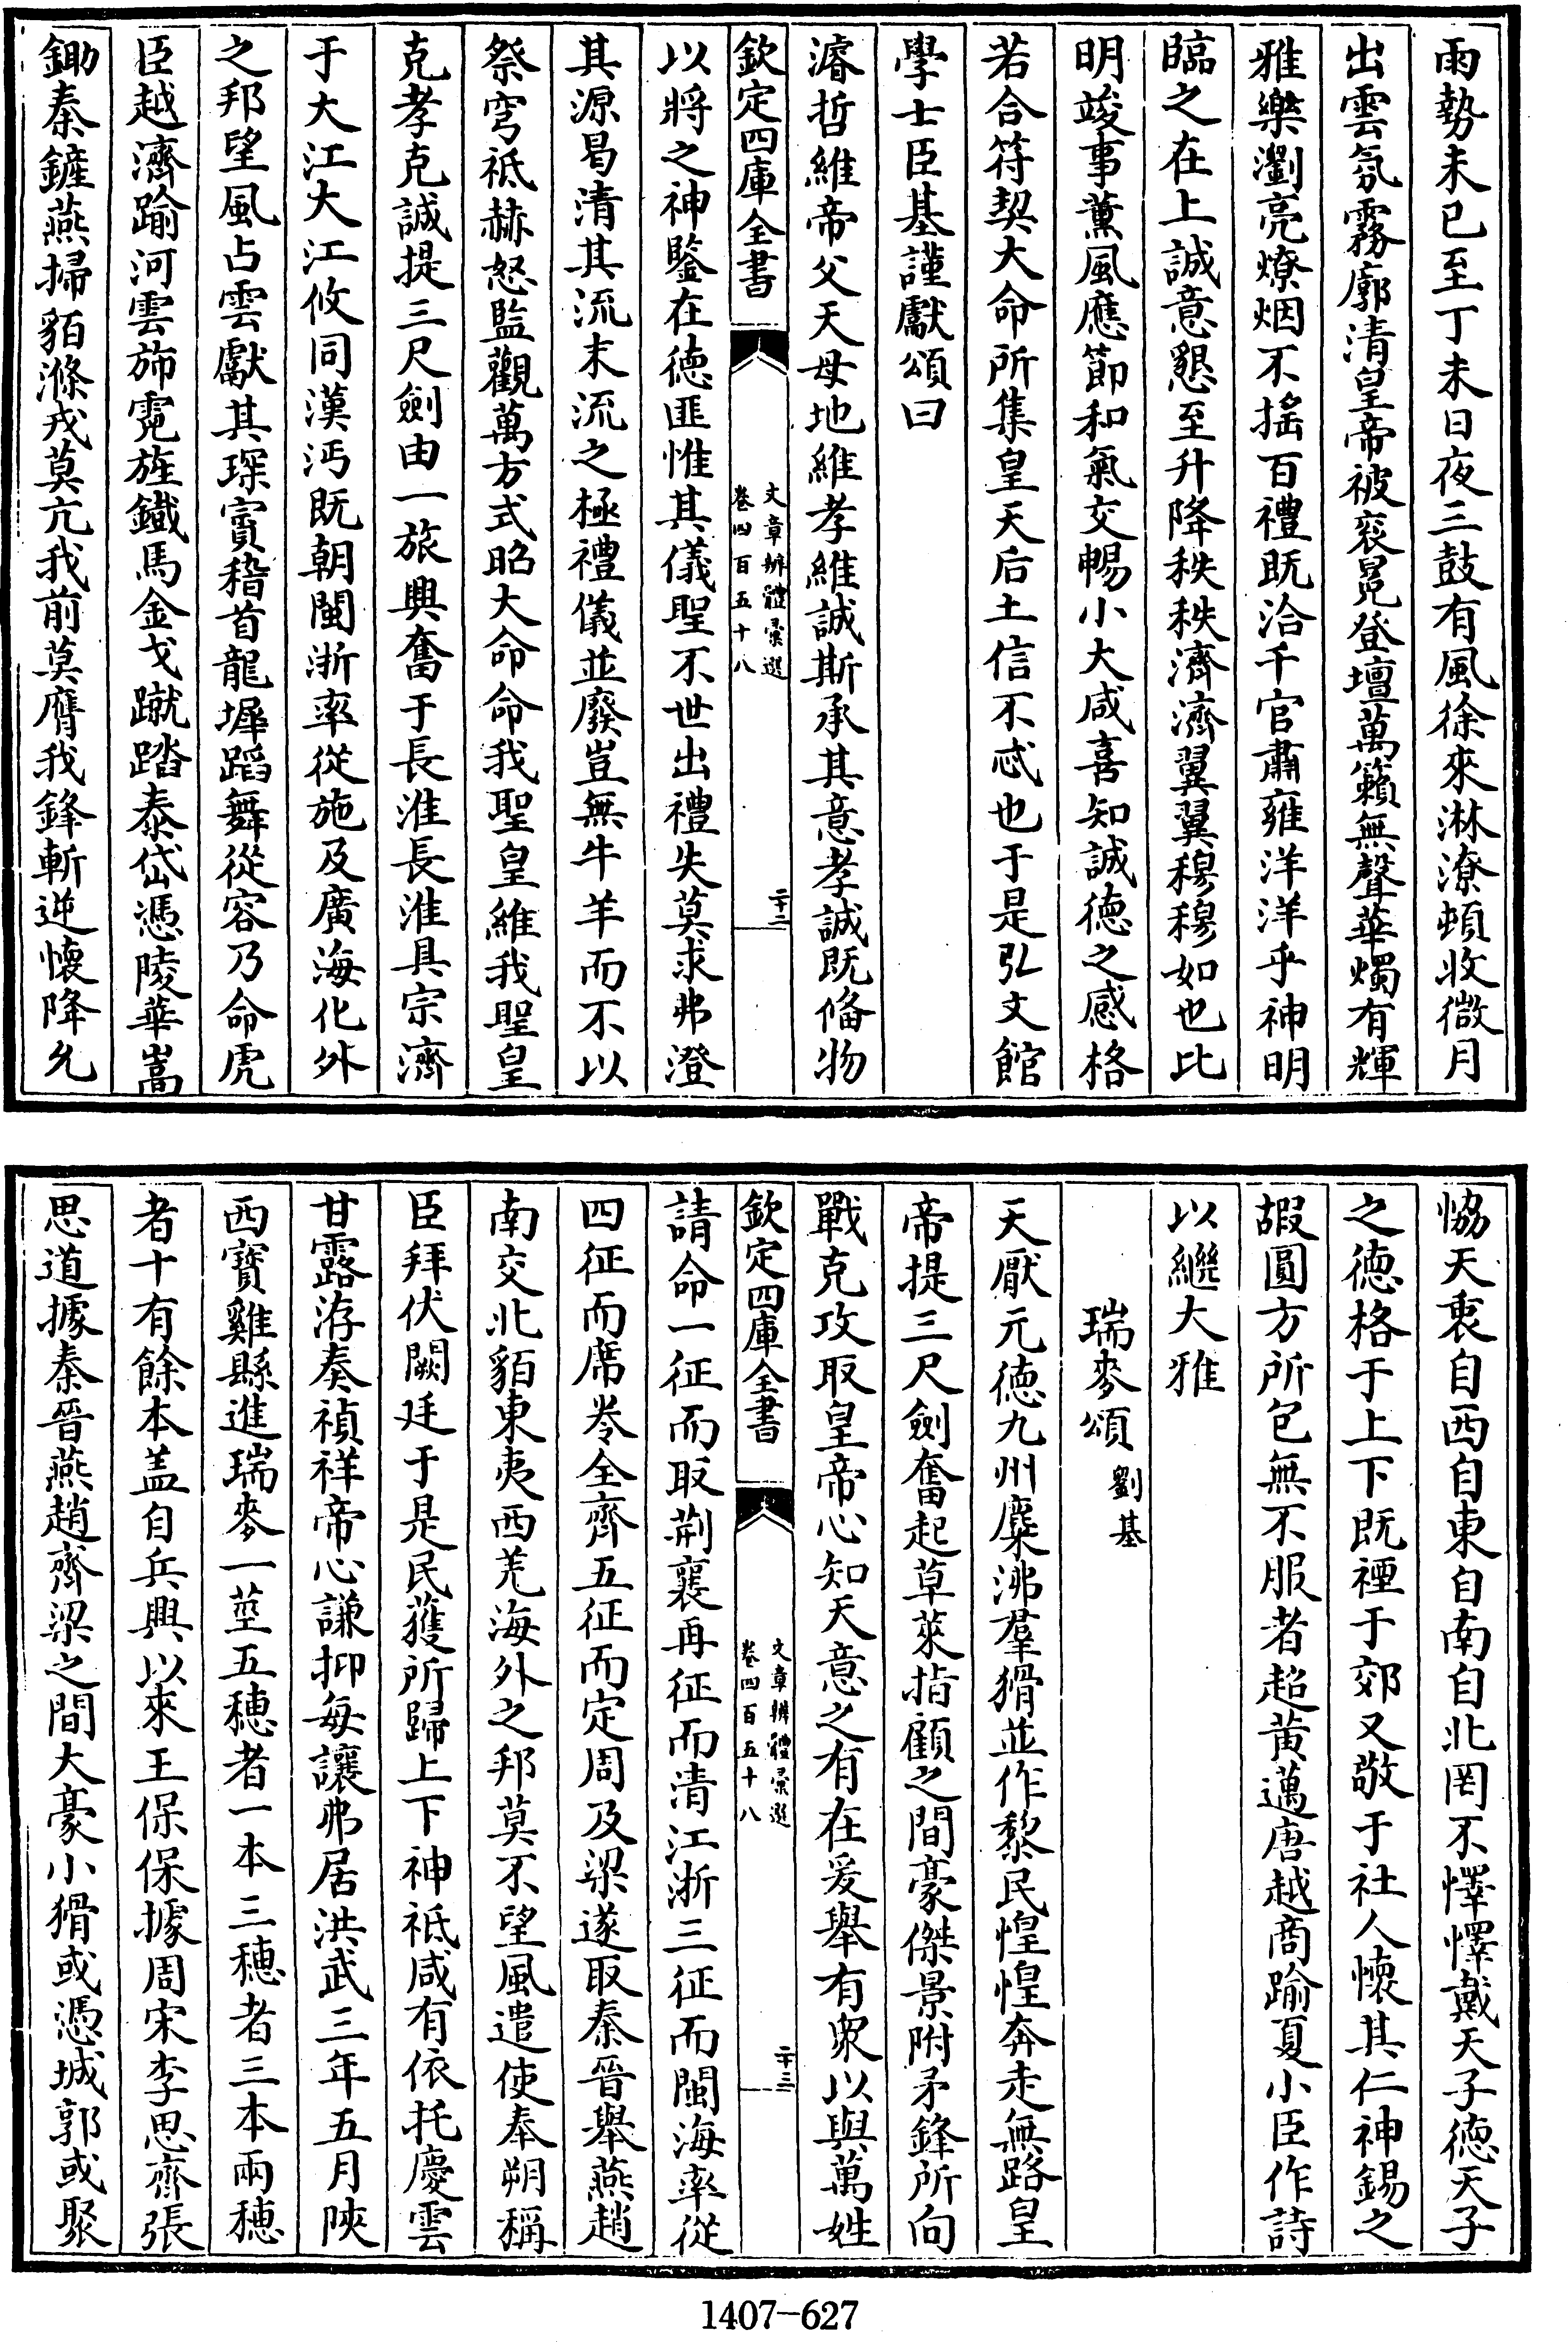 雨勢未已至丁未日夜三鼓有風徐來淋潦頓收微月
出雲氛霧廓清皇帝被袞冕登壇萬籟無聲華燭有輝
雅樂瀏亮燎烟不搖百禮既洽千官肅雍洋洋乎神明
臨之在上誠意懇至升降秩秩濟濟翼翼穆穆如也比
明竣事薰風應節和氣交暢小大咸喜知誠德之感格
若合符契大命所集皇天后土信不忒也于是弘文館
學士臣基謹獻頌曰
濬哲維帝父天母地維孝維誠斯承其意孝誠既備物
欽定四庫全書
文章辨體彙選
卷四百五十八
二十二
以將之神鑒在德匪惟其儀聖不世出禮失莫求弗澄
其源曷清其流末流之極禮儀並廢豈無牛羊而不以
祭穹祇赫怒監觀萬方式昭大命命我聖皇維我聖皇
克孝克誠提三尺劍由一旅興奮于長淮長淮具宗濟
于大江大江攸同漢沔既朝閩浙率從施及廣海化外
之邦望風占雲獻其琛賨稽首龍墀蹈舞從容乃命虎
臣越濟踰河雲斾霓旌鐵馬金戈蹴踏泰岱憑陵華嵩
鋤秦鏟燕掃貊滌戎莫亢我前莫膺我鋒斬逆懷降允
恊天衷自西自東自南自北罔不懌懌戴天子德天子
之德格于上下既禋于郊又敬于社人懷其仁神錫之
嘏圓方所包無不服者超黄邁唐越商踰夏小臣作詩
以繼大雅
瑞麥頌 劉基
天厭元德九州麋沸羣猾並作黎民惶惶奔走無路皇
帝提三尺劍奮起草萊指顧之間豪傑景附矛鋒所向
戰克攻取皇帝心知天意之有在爰舉有衆以與萬姓
欽定四庫全書
文章辨體彙選
卷四百五十八
二十三
請命一征而取荆襄再征而清江浙三征而閩海率從
四征而席卷全齊五征而定周及梁遂取秦晉舉燕趙
南交北貊東夷西羌海外之邦莫不望風遣使奉朔稱
臣拜伏闕廷于是民獲所歸上下神祇咸有依托慶雲
甘露洊奏禎祥帝心謙抑每讓弗居洪武三年五月陝
西寶雞縣進瑞麥一莖五穗者一本三穗者三本兩穗
者十有餘本盖自兵興以來王保保據周宋李思齊張
思道據秦晉燕趙齊梁之間大豪小猾或憑城郭或聚
1407-627